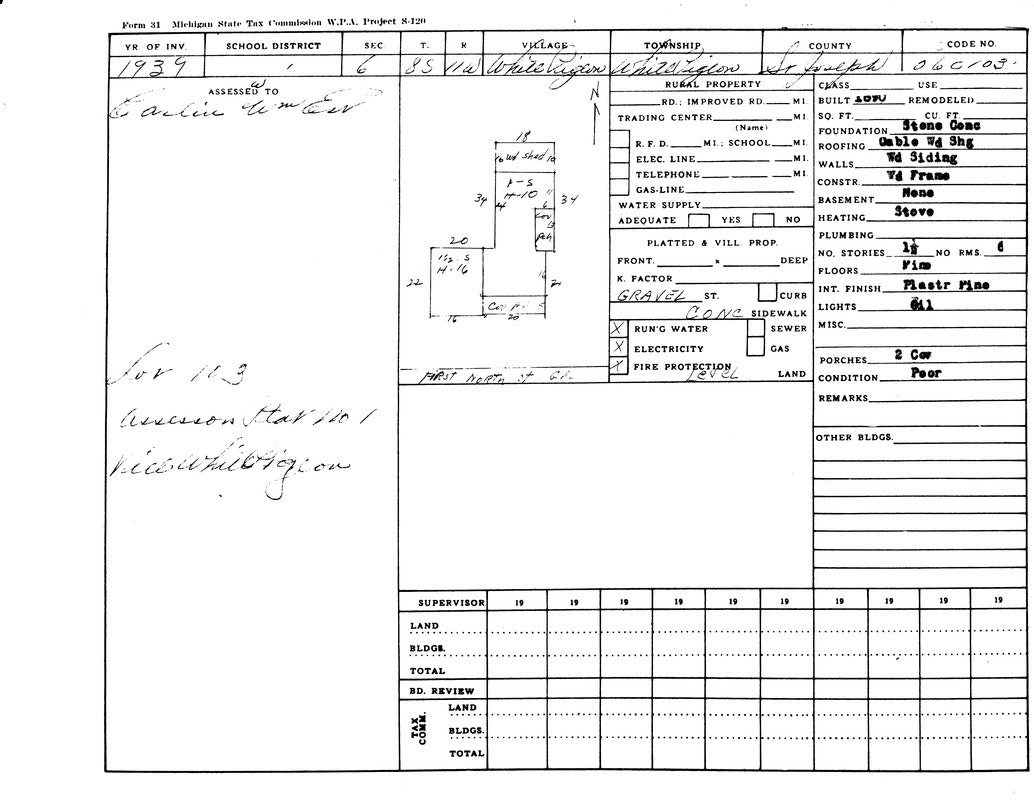 Form 31 Michigan State Tax Commission W.P.A. Project S-120
YR OF INV. SCHOOL DISTRICT SEC. T. R VILLAGE TOWNSHIP COUNTY CODE NO.
1939 6 8S 11W White Pigeon White Pigeon St Joseph 06C103
ASSESSED TO
Wm Est
Lot 103
Assessors Plat No 1
White Pigeon
N
18
Wd Shed
1-S
H-10
34
34
6
Cov
Pch
20
1½-S
H-16
22
16
20
FIRST NORTH of
RURAL PROPERTY
RD.; IMPROVED RD. MI.
TRADING CENTER MI.
(Name)
R. F. D. MI.; SCHOOL MI.
ELEC. LINE MI.
TELEPHONE MI.
GAS-LINE
WATER SUPPLY
ADEQUATE YES NO
PLATTED & VILL. PROP.
FRONT. x DEEP
K. FACTOR
GRAVEL ST. CURB
CONC SIDEWALK
X RUN'G WATER SEWER
X ELECTRICITY GAS
X FIRE PROTECTION
LEVEL LAND
CLASS USE
BUILT REMODELED
SQ. FT. CU. FT.
FOUNDATION Stone Conc
ROOFING Gable Wd Shg
WALLS Wd Siding
CONSTR. Wd Frame
BASEMENT None
HEATING Stove
PLUMBING
NO. STORIES 1½ NO RMS. 6
FLOORS Pine
INT. FINISH Plastr Pine
LIGHTS Oil
MISC.
PORCHES 2 Cov
CONDITION Poor
REMARKS
OTHER BLDGS.
SUPERVISOR 19 19 19 19 19 19 19 19 19 19
LAND
BLDGS.
TOTAL
BD. REVIEW
TAX COMM.
LAND
BLDGS.
TOTAL